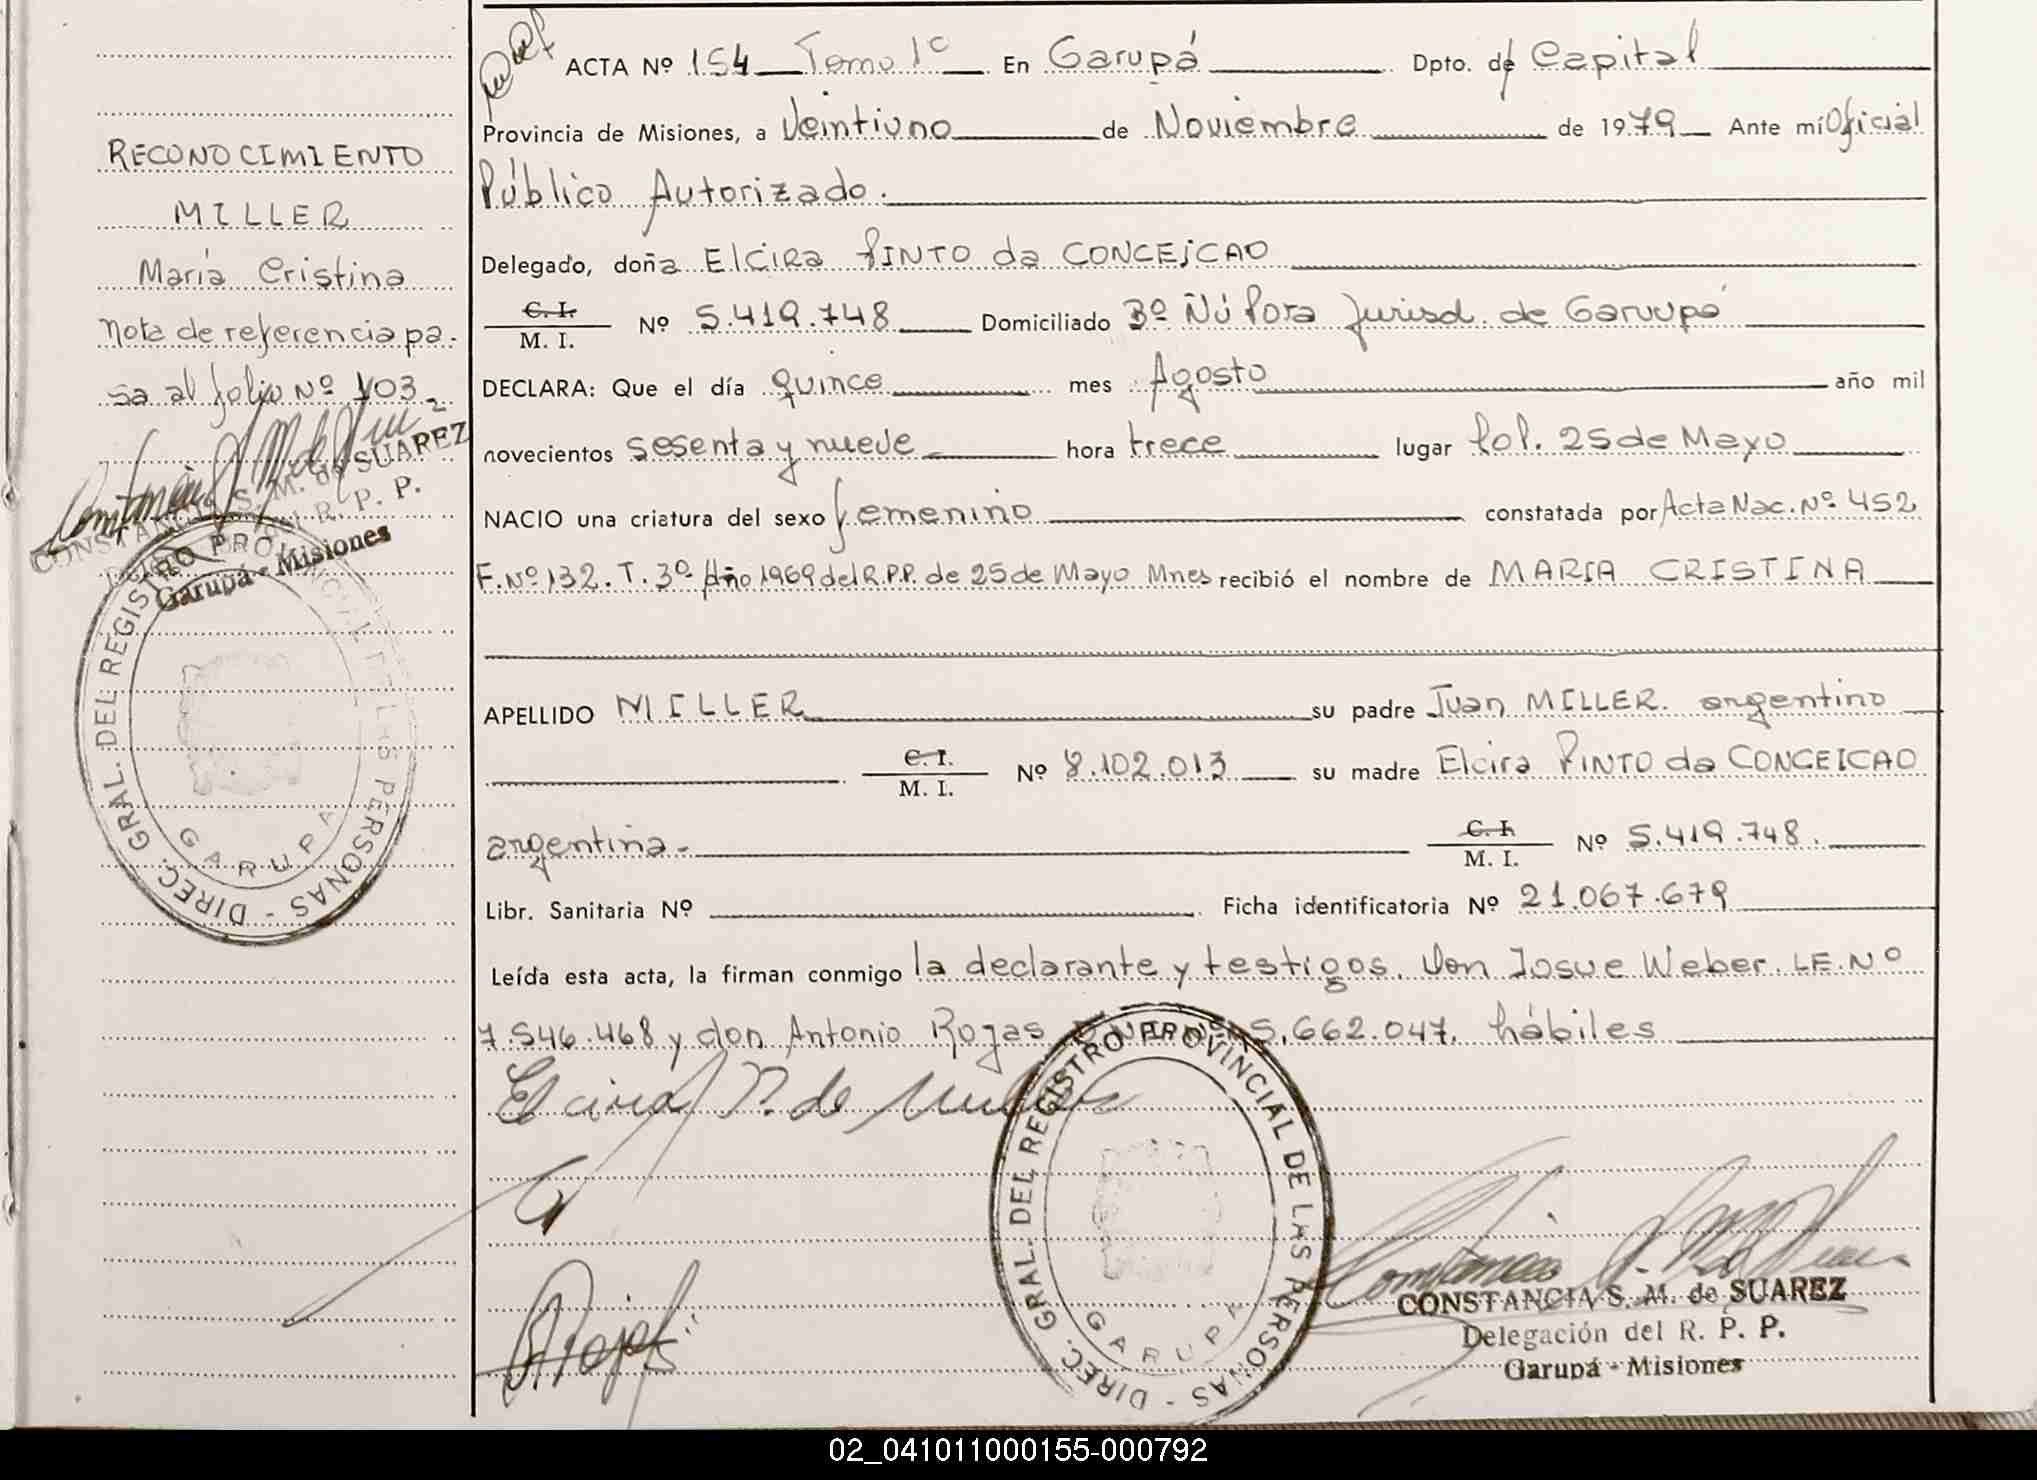 RECONOCIMIENTO
MILLER
María Cristina
Nota de referencia pa-
sa al folio Nº 103.
CONSTANCIA S. M. de SUAREZ
R. P. P.
Garupá - Misiones
DIREC. GRAL. DEL REGISTRO PROVINCIAL DE LAS PERSONAS -
GARUPA
ACTA Nº 154 Tomo 1º En Garupá Dpto. de Capital
Provincia de Misiones, a Veintiuno de Noviembre de 1979 Ante mí Oficial
Público Autorizado.
Delegado, doña Elcira PINTO da CONCEiCAO
C. I. / M. I. Nº 5.419.748 Domiciliado Bº Ñú Pora Jurisd. de Garuupá
DECLARA: Que el día quince mes Agosto año mil
novecientos sesenta y nueve hora trece lugar Col. 25 de Mayo
NACIO una criatura del sexo femenino constatada por Acta Nac. Nº 452
F. Nº 132. T. 3º Año 1969 del R.P.P. de 25 de Mayo Mnes recibió el nombre de MARIA CRISTINA
APELLIDO MILLER su padre Juan MILLER. argentino
C. I. / M. I. Nº 8.102.013 su madre Elcira PINTO da CONCEICAO
argentina. C. I. / M. I. Nº 5.419.748.
Libr. Sanitaria Nº Ficha identificatoria Nº 21.067.679
Leída esta acta, la firman conmigo la declarante y testigos. Don Josue Weber. LE. Nº
7.546.468 y don Antonio Rojas 5.662.047. hábiles
Elcira P. de Miller
A. Rojas
DIREC. GRAL. DEL REGISTRO PROVINCIAL DE LAS PERSONAS -
GARUPA
CONSTANCIA S. M. de SUAREZ
Delegación del R. P. P.
Garupá - Misiones
02_041011000155-000792